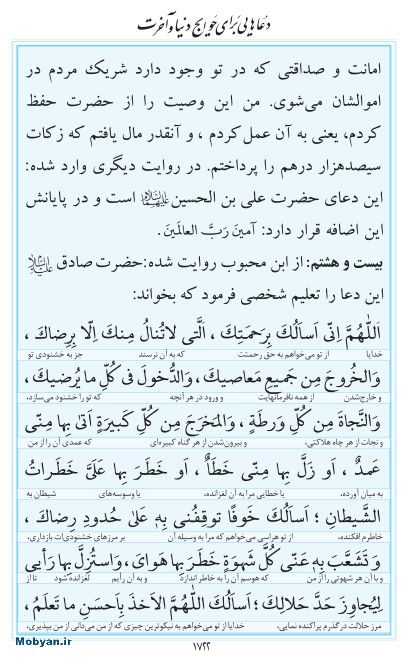 دعاهایی برای حوایج دنیا و آخرت
امانت و صداقتی که در تو وجود دارد شریک مردم در
اموالشان می‌شوی. من این وصیت را از حضرت حفظ
کردم، یعنی به آن عمل کردم ، و آنقدر مال یافتم که زکات
سیصدهزار درهم را پرداختم. در روایت دیگری وارد شده:
این دعای حضرت علی بن الحسین علیهماالسلام است و در پایانش
این اضافه قرار دارد: آمینَ رَبَّ العالَمینَ.
بیست و هشتم: از ابن محبوب روایت شده:حضرت صادق علیه‌السلام
این دعا را تعلیم شخصی فرمود که بخواند:
اَللّٰهُمَّ اِنّی اَسأَلُکَ بِرَحمَتِکَ ، الَّتی لاتُنالُ مِنکَ اِلّا بِرِضاکَ ،
خدایا از تو می‌خواهم به حق رحمتت که به آن نرسند جز به خشنودی تو
وَالخُروجَ مِن جَمیعِ مَعاصیکَ، وَالدُّخولَ فی کُلِّ ما یُرضیکَ،
و خارج‌شدن از همه نافرمانیهایت و ورود در هر آنچه که تو را خشنود می‌سازد،
وَالنَّجاةَ مِن کُلِّ وَرطَةٍ ، وَالمَخرَجَ مِن کُلِّ کَبیرَةٍ اَتیٰ بِها مِنّی
و نجات از هر چاه هلاکتی، و بیرون‌شدن از هر گناه کبیره‌ای که عمدی آن را از من
عَمدٌ ، اَو زَلَّ بِها مِنّی خَطَأٌ ، اَو خَطَرَ بِها عَلَیَّ خَطَراتُ
به میان آورده، یا خطایی مرا به آن لغزانده، یا وسوسه‌های شیطان به
الشَّیطانِ ؛ اَسأَلُکَ خَوفًا توقِفُنی بِهِ عَلیٰ حُدودِ رِضاکَ ،
خاطرم افکنده، از تو هراسی می‌خواهم که مرا به وسیله آن بر مرزهای خشنودی‌ات بازداری،
وَ تَشَعَّبَ بِهِ عَنّی کُلَّ شَهوَةٍ خَطَرَ بِها هَوایَ، وَاستُزِلَّ بِها رَأیی
و با آن هر شهوتی را از من که هوسم آن را به خاطر اندازد و به آن رأیم لغزانده شود تا از
لِیُجاوِزَ حَدَّ حَلالِکَ؛ اَسأَلُکَ اللّٰهُمَّ الاَخذَ بِاَحسَنِ ما تَعلَمُ ،
مرز حلالت درگذرم پراکنده نمایی، خدایا از تو می‌خواهم به نیکوترین چیزی که از من می‌دانی از من بپذیری،
Mobyan.ir
۱۷۲۲